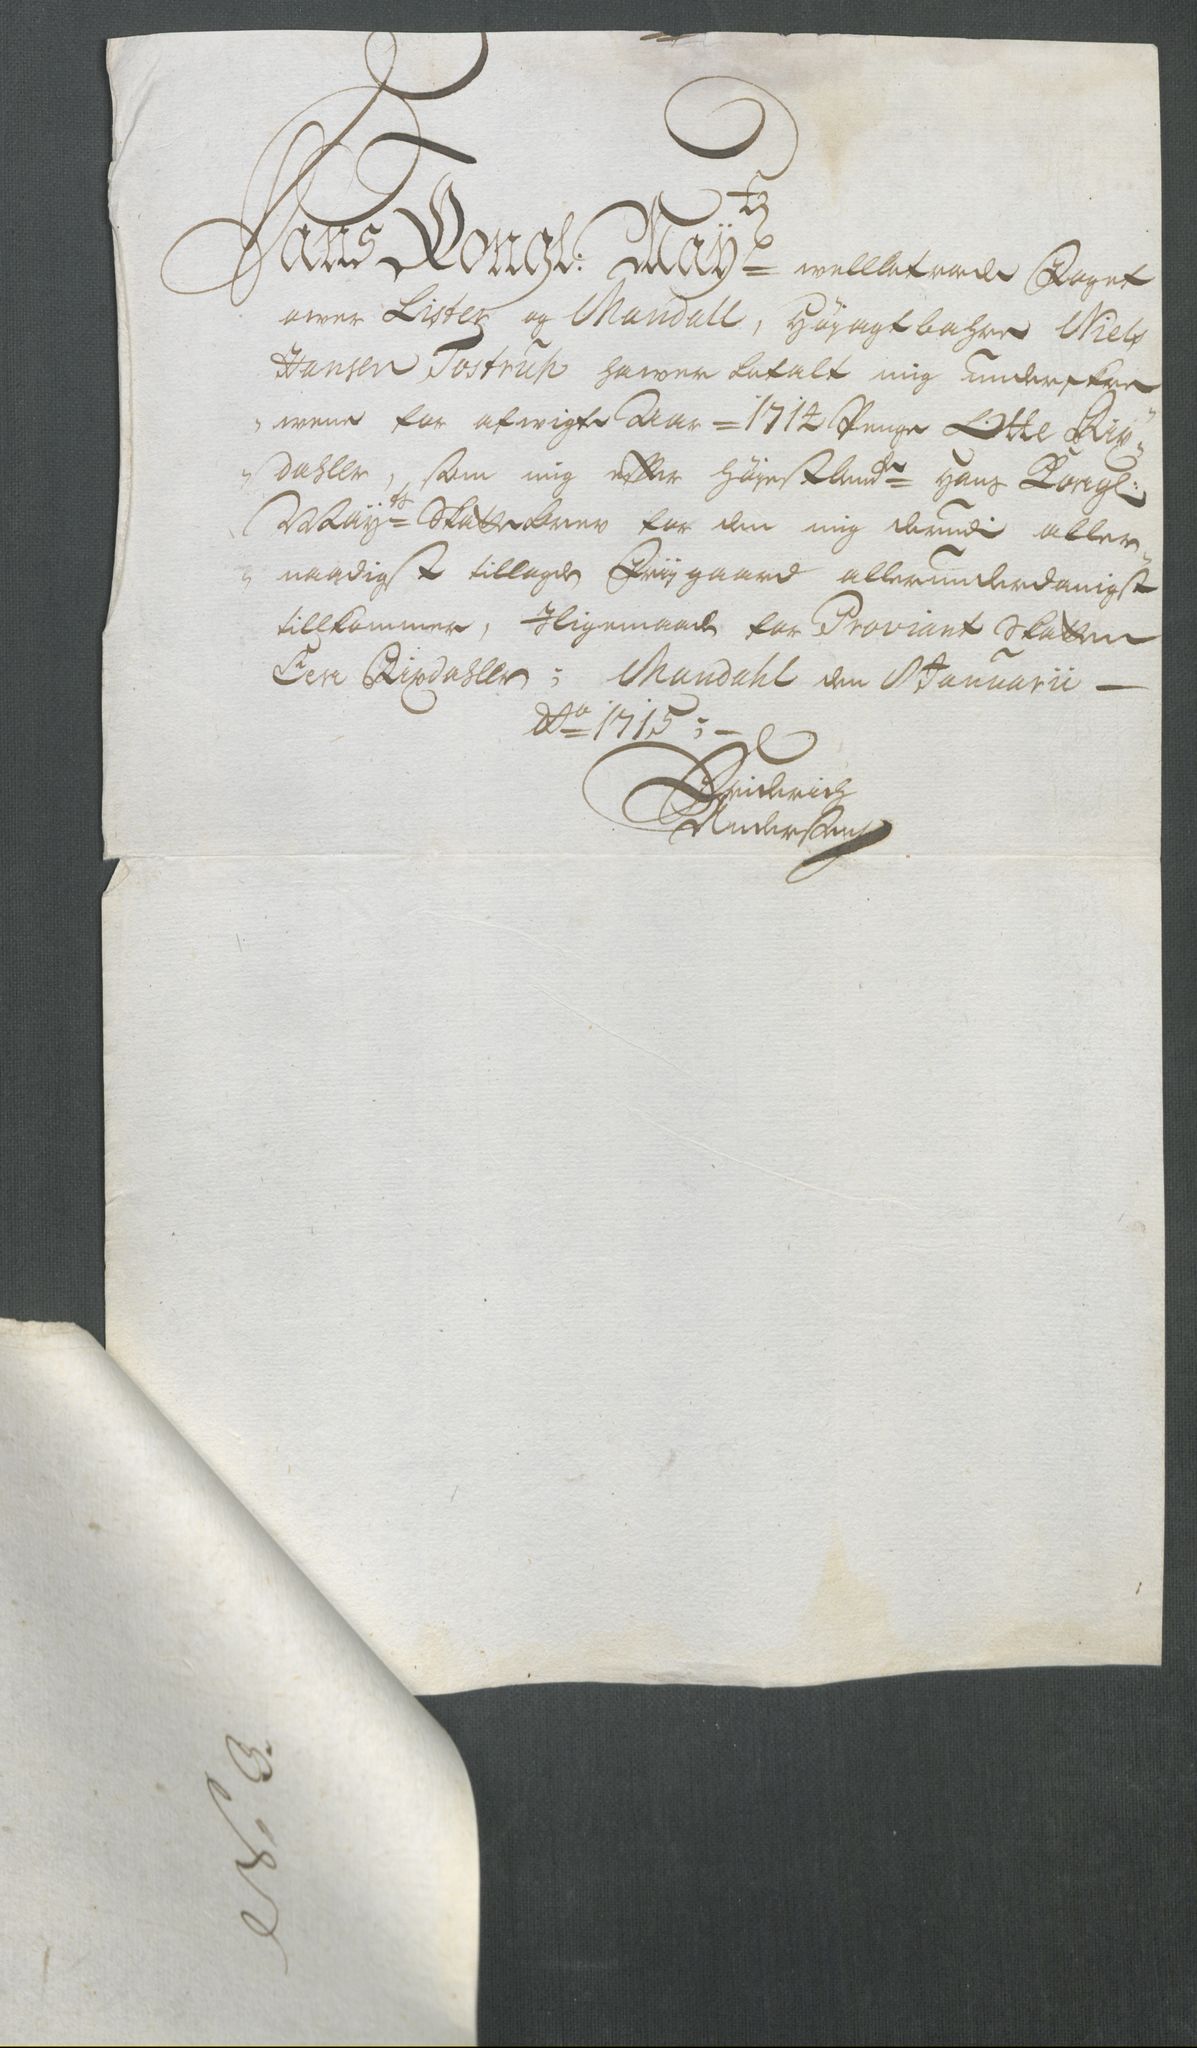 Hans Kongl: Maÿ^ts welbetroede Foget
ower Lister og Mandall, Høÿagtbahre Niels
Hansen Tostrup hawer betalt mig underskre
„wene for afwigte Aar = 1714 Penge Otte Rix„
„dahler, som mig efter høÿestbem^te Hans Kongl:
Maÿ^ts Skattebrev for den mig derudi aller„
„naadigst tillagde Friigaard allerunderdanigst
tillkommer, Iligemaade for Proviant Skatten
Fere Rixdahler; Mandahl den 8 Januarii —
A^o 1715 ; —
Friderich
Andersen
No. 3.